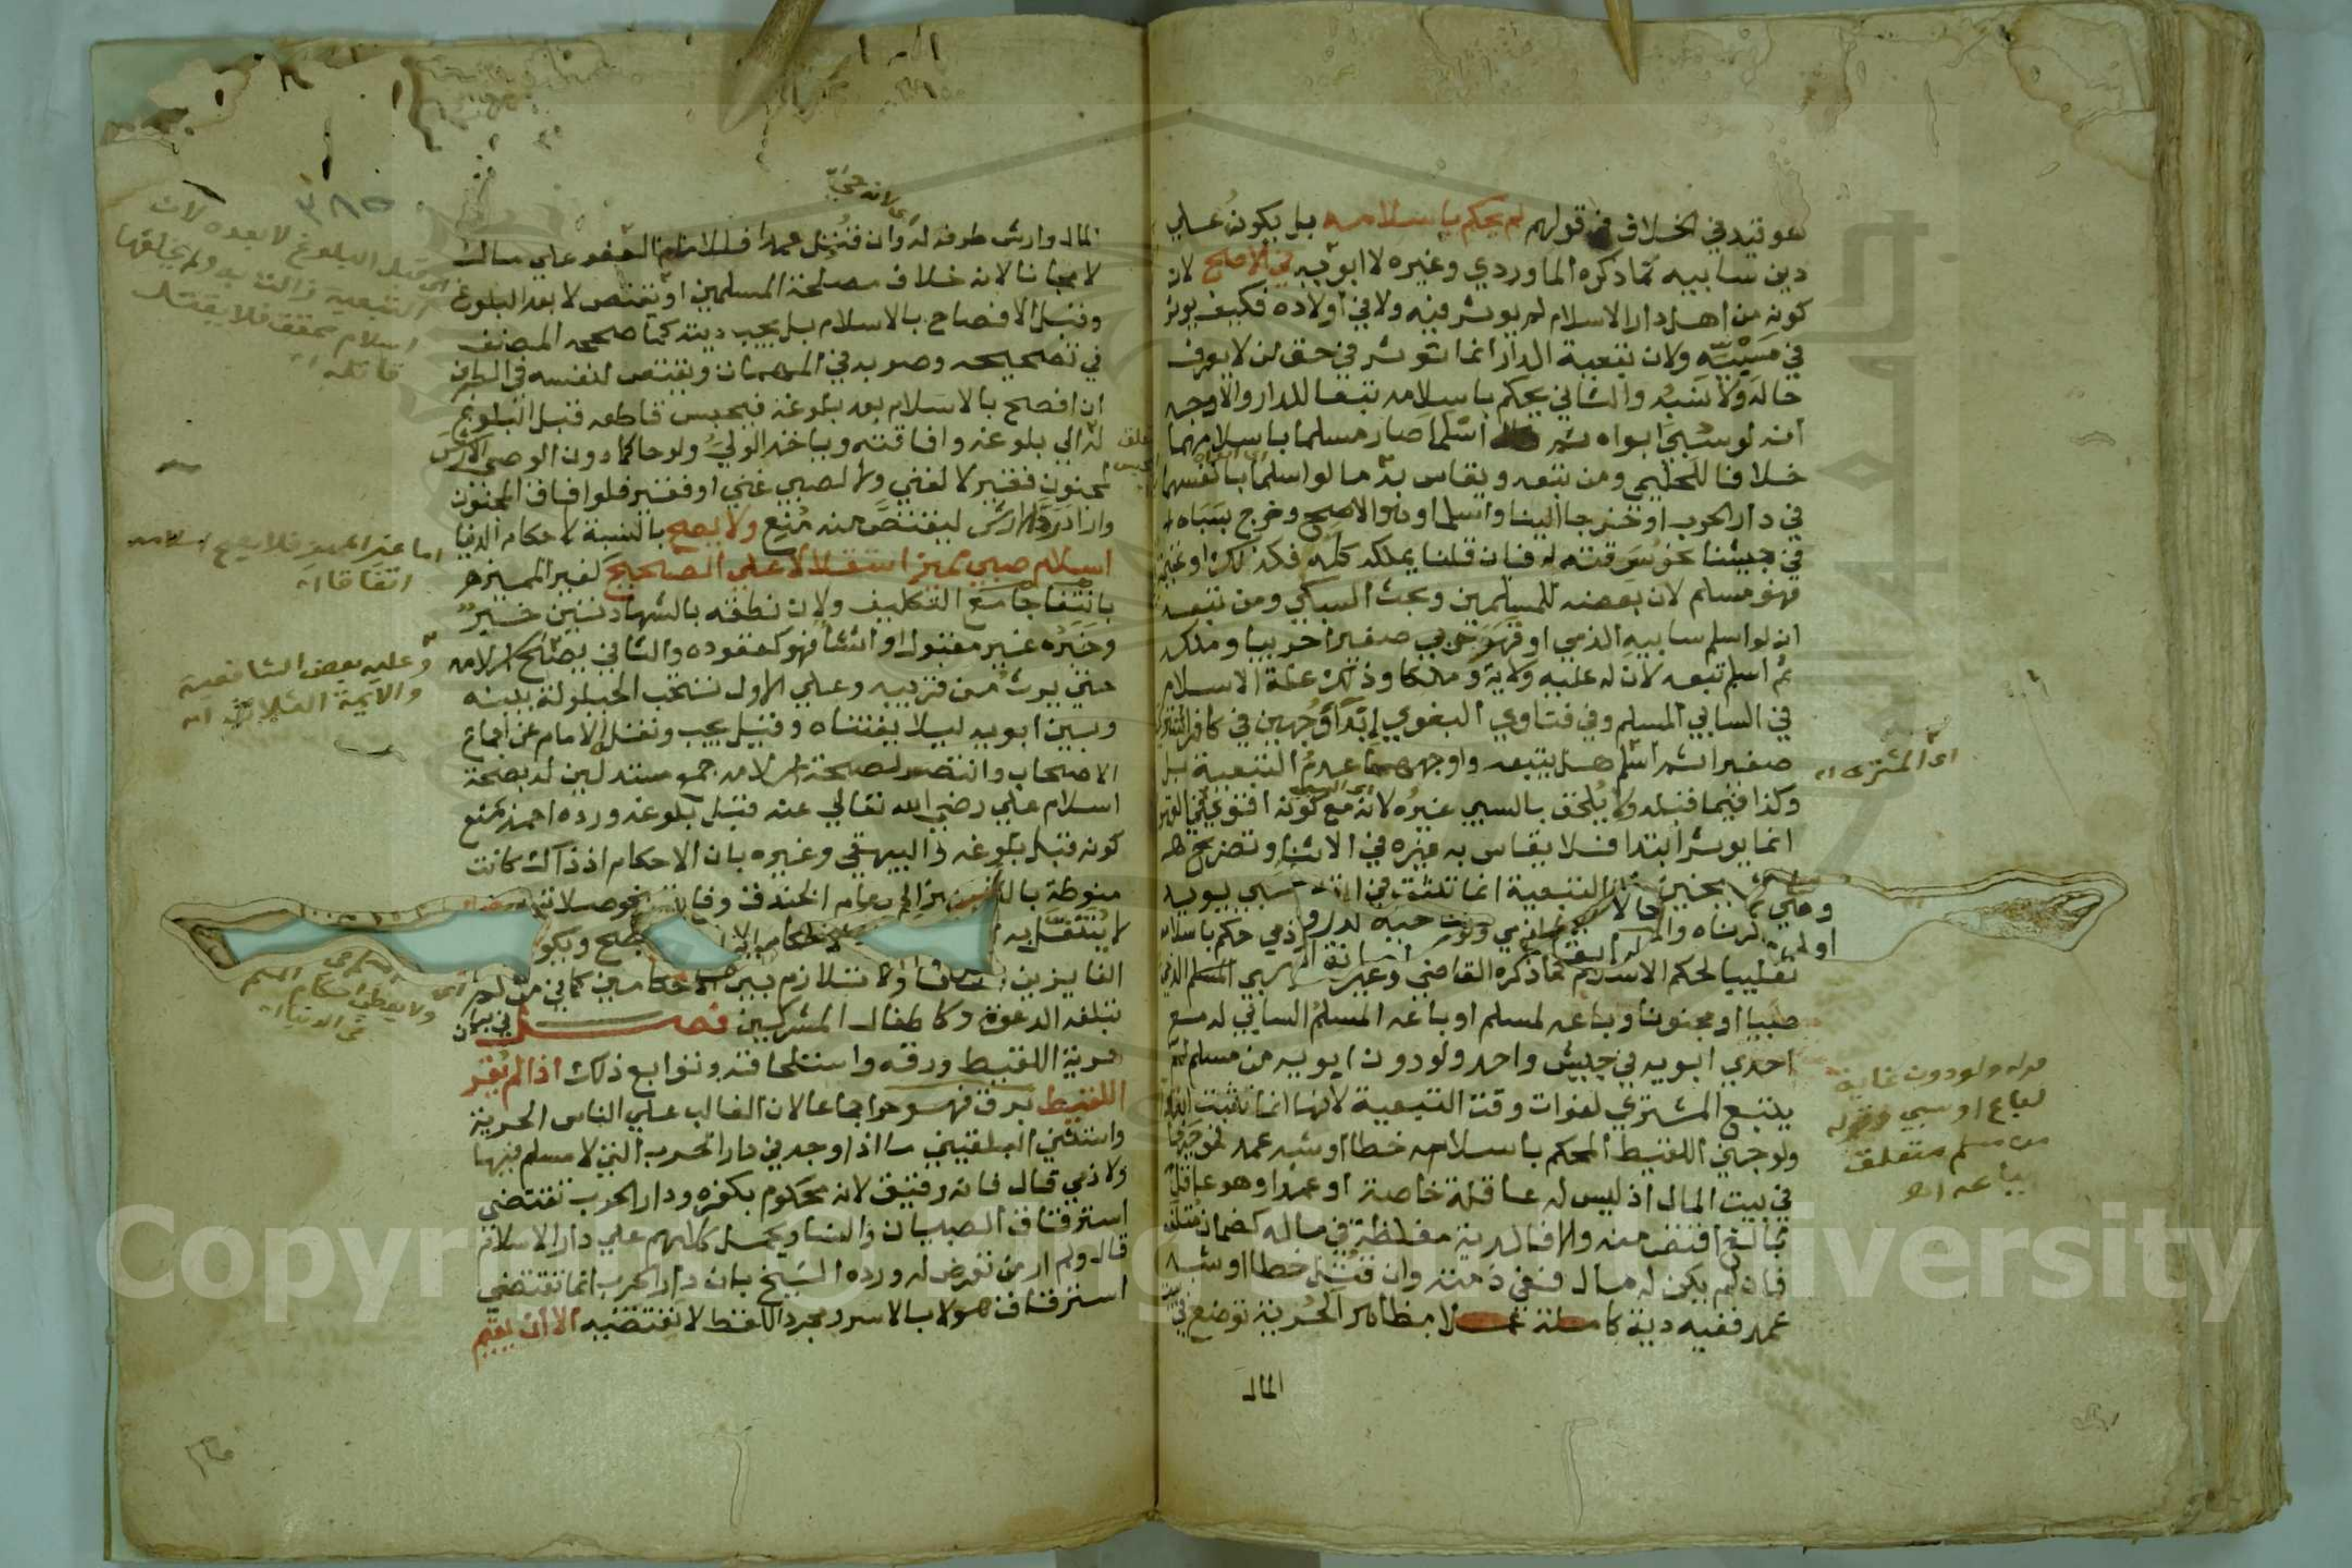 هو قيد في الخلاف في قولهم لم يحكم باسلامه بل يكون على
دين سابيه كما ذكره الماوردي وغيره لا ابويه في الاصح لان
كونه من اهل دار الاسلام لم يوثر فيه ولا في اولاده فكيف يوثر
في مسبيه ولان تبعية الدار انما توثر في حق من لا يعرف
حاله ولا نسبه والثاني يحكم باسلامه تبعا للدار والاوجه
انه لو سبي ابواه ثم اسلما صار مسلما باسلامهما
خلافا للحليمي ومن تبعه ويقاس به ما لو اسلما بانفسهما
في دار الحرب او خرجا الينا واسلما وهو الاصح وخرج بسباه
في جيشنا نحو سرقته له فان قلنا يملكه كله فكذلك او غنيمة
فهو مسلم لان بعضه للمسلمين وبحث السبكي ومن تبعه
انه لو اسلم سابيه الذمي او قهر حربي صغيرا حربيا وملكه
ثم اسلم تبعه لان له عليه ولاية وملكا وذلك علة الاسلام
في السابي المسلم وفي فتاوي البغوي ابدا وجهين في كافر اشترى
صغيرا ثم اسلم هل يتبعه واوجههما عدم التبعية بل
وكذا فيما قبله ولا يلحق بالسبي غيره لانه مع كونه اقوي في القهر
انما يوثر ابتدا فلا يقاس به غيره في الاثنا وتصريح
التبعية انما تثبت في
تغليبا لحكم الاسلام كما ذكره القاضي وغيره المسلم الذمي
صبيا او مجنونا وباعه لمسلم او باعه المسلم السابي له مع
احدي ابويه في جيش واحد ولو دون ابويه من مسلم لم
يتبع المشتري لفوات وقت التبعية لانها انما تثبت ابتدا
ولو جني اللقيط المحكم باسلامه خطا او شبه عمد فموجبها
في بيت المال اذ ليس له عاقلة خاصة او عمدا وهو عاقل
بالغ اقتص منه والا فالدية مغلظة في ماله كضمان متلفه
فان لم يكن له مال ففي ذمته وان قتل خطا او شبه
عمد ففيه دية كاملة عملا بظاهر الحرية توضع في بيت
المال
اى المشترى اه
قوله ولو دون غاية
لباع او سبي وقوله
من مسلم متعلق
بباعه اه
المال وارش طرفه له وان قتل عمدا فللامام العفو على مال
لا مجانا لانه خلاف مصلحة المسلمين او يقتص لا بعد البلوغ
وقبل الافصاح بالاسلام بل يجب ديته كما صححه المصنف
في تصحيحه وصوبه في المهمات ويقتص لنفسه في الطرف
ان افصح بالاسلام بعد بلوغه فيحبس قاطعه قبل البلوغ
له الي بلوغه وافاقته وياخذ الولي ولو حاكما دون الوصي الارش
لمجنون فقير لا لغني ولا لصبي غني او فقير فلو افاق المجنون
واراد رد الارش ليقتص منه منع ولا يصح بالنسبة لاحكام الدنيا
اسلام صبي مميز استقلالا على الصحيح كغير المميز
بانتفا جامع التكليف ولان نطقه بالشهادتين خبر
وخبره غير مقبول او انشا فهو كعقوده والثاني يصح اسلامه
حتي يرث من قريبه وعلي الاول تستحب الحيلولة بينه
وبين ابويه ليلا يفتناه وقيل يجب ونقل الامام عن اجماع
الاصحاب وانتصر لصحة اسلامه جمع مستدلين له بصحة
اسلام علي رضي الله تعالي عنه قبل بلوغه ورده احمد بمنع
كونه قبل بلوغه والبيهقي وغيره بان الاحكام اذ ذاك كانت
منوطة بالتمييز الي عام الخندق وفارق نحو صلاته
الفايزين ولا تلازم بين الاحكامين كما في من لم
تبلغه الدعوة وكاطفال المشركين فصل في بيان
حرية اللقيط ورقه واستلحاقه وتوابع ذلك اذا لم يقر
اللقيط برق فهو حر اجماعا لان الغالب على الناس الحرية
واستثني البلقيني ما اذا وجد في دار الحرب التي لا مسلم فيها
ولا ذمي قال فانه رقيق لانه محكوم بكفره ودار الحرب تقتضي
استرقاق الصبيان والنسا ويحمل كلامهم على دار الاسلام
قال ولم ار من تعرض له ورده الشيخ بان دار الحرب انما تقتضي
استرقاق هولا بالاسر ومجرد اللقط لا يقتضيه الا ان يقيم
٣٨٥
اى قبل البلوغ لا بعده لان
التبعية زالت به ولم يخلفها
اسلام محقق فلا يقتل
قاتله اه
اما غير المميز فلا يصح اسلامه
اتفاقا اه
وعليه بعض الشافعية
والايمة الثلاثة اه
فى الدنيا اه
Copyright © King Saud University